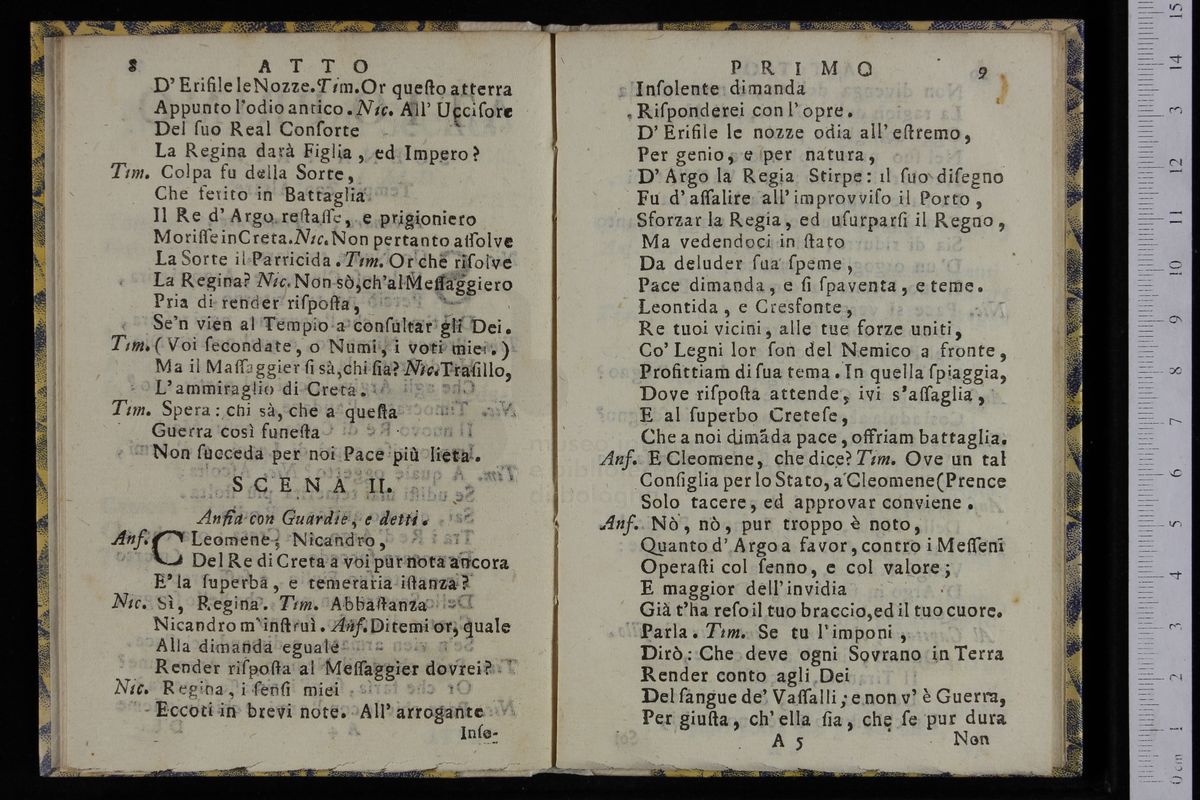 8 ATTO
D' Erifile le Nozze. Tim. Or queſto atterra
Appunto l'odio antico. Nic. All' Ucciſore
Del ſuo Real Conſorte
La Regina darà Figlia, ed Impero?
Tim. Colpa fu della Sorte,
Che ferito in Battaglia
Il Re d' Argo reſtaſſe, e prigioniero
Moriſſe in Creta. Nic. Non pertanto aſſolve
La Sorte il Parricida. Tim. Or che riſolve
La Regina? Nic. Non sò, ch'al Meſſaggiero
Pria di render riſpoſta,
Se'n vien al Tempio a conſultar gli Dei.
Tim. (Voi ſecondate, o Numi, i voti miei.)
Ma il Maſſaggier ſi sà, chi ſia? Nic. Traſillo,
L' ammiraglio di Creta.
Tim. Spera: chi sà, che a queſta
Guerra così funeſta
Non ſucceda per noi Pace più lieta.
SCENA II.
Anſia con Guardie, e detti.
Anf. CLeomene, Nicandro,
Del Re di Creta a voi pur nota ancora
E' la ſuperba, e temeraria iſtanza?
Nic. Sì, Regina. Tim. Abbaſtanza
Nicandro m'inſtruì. Anf. Ditemi or, quale
Alla dimanda eguale
Render riſpoſta al Meſſaggier dovrei?
Nic. Regina, i ſenſi miei
Eccoti in brevi note. All' arrogante
Inſo-
PRIMO 9
Inſolente dimanda
Riſponderei con l' opre.
D' Erifile le nozze odia all' eſtremo,
Per genio, e per natura,
D' Argo la Regia Stirpe: il ſuo diſegno
Fu d' aſſalire all' improvviſo il Porto,
Sforzar la Regia, ed uſurparſi il Regno,
Ma vedendoci in ſtato
Da deluder ſua ſpeme,
Pace dimanda, e ſi ſpaventa, e teme.
Leontida, e Cresfonte,
Re tuoi vicini, alle tue forze uniti,
Co' Legni lor ſon del Nemico a fronte,
Profittiam di ſua tema. In quella ſpiaggia,
Dove riſpoſta attende, ivi s'aſſaglia,
E al ſuperbo Creteſe,
Che a noi dimāda pace, offriam battaglia.
Anf. E Cleomene, che dice? Tim. Ove un tal
Conſiglia per lo Stato, a Cleomene (Prence
Solo tacere, ed approvar conviene.
Anf. Nò, nò, pur troppo è noto,
Quanto d' Argo a favor, contro i Meſſeni
Operaſti col ſenno, e col valore;
E maggior dell' invidia
Già t'ha reſo il tuo braccio, ed il tuo cuore.
Parla. Tim. Se tu l'imponi,
Dirò: Che deve ogni Sovrano in Terra
Render conto agli Dei
Del ſangue de' Vaſſalli; e non v' è Guerra,
Per giuſta, ch' ella ſia, che ſe pur dura
A 5 Non